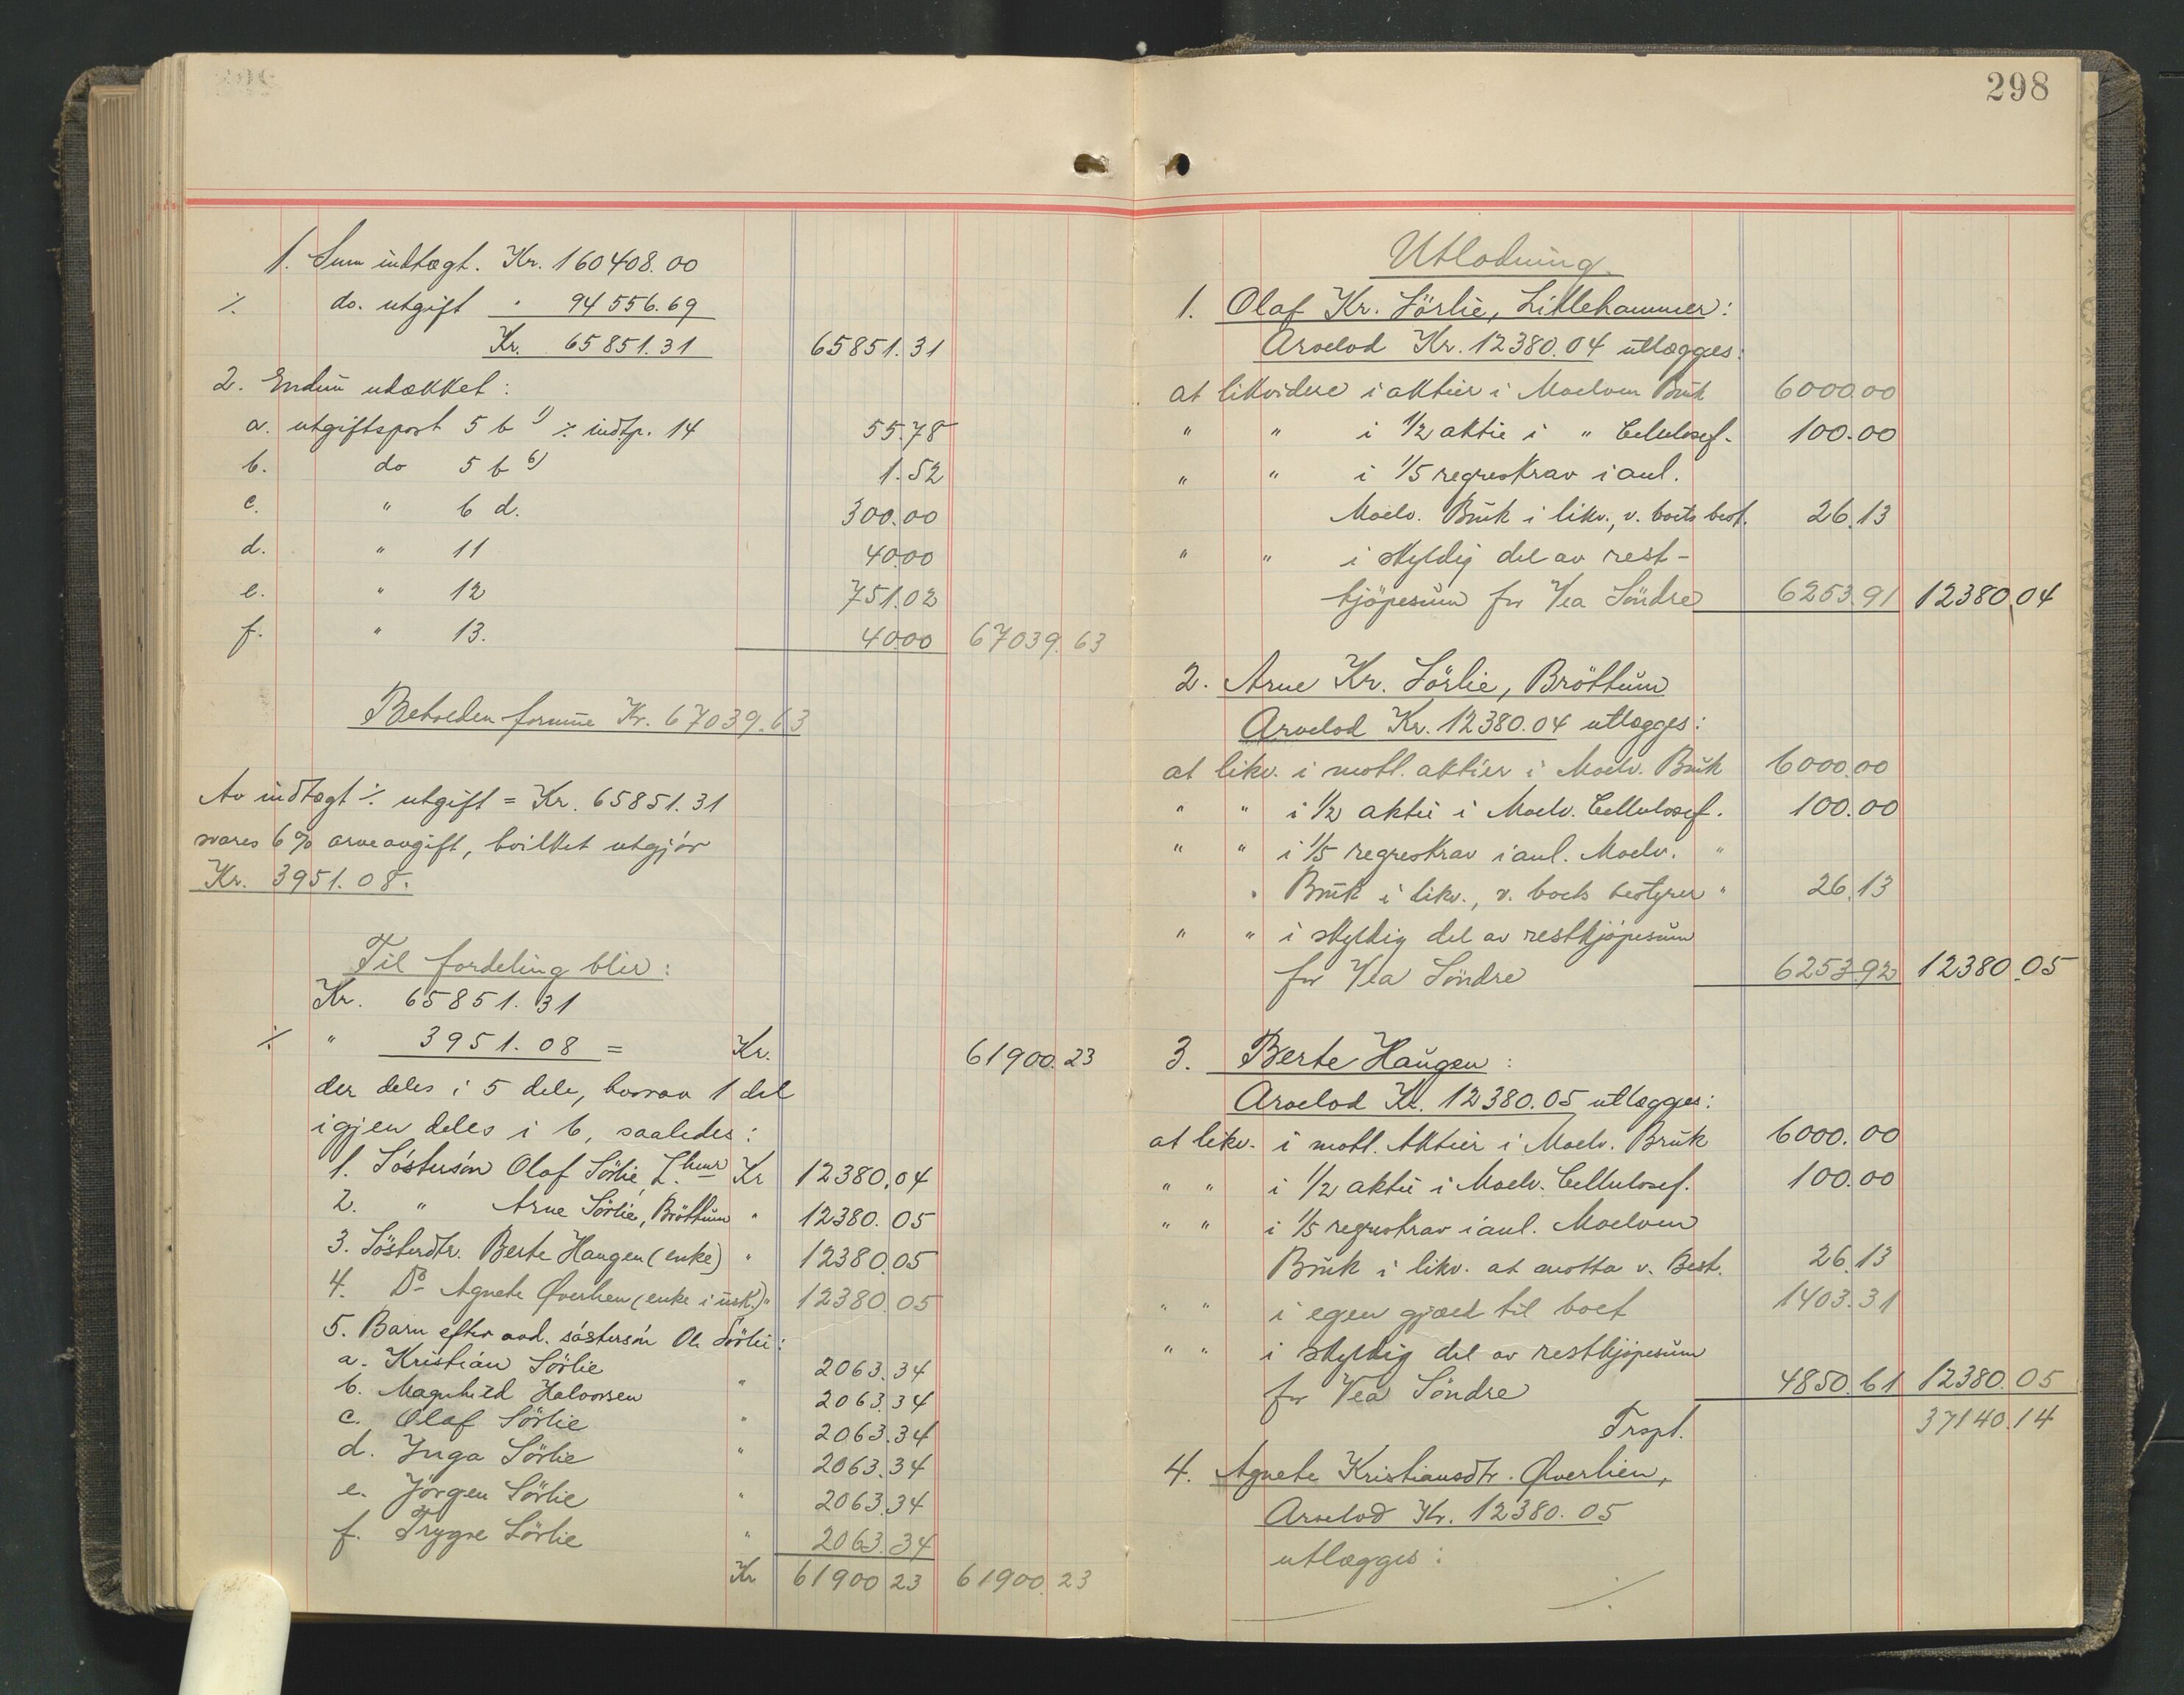 1. Sum indtægt. Kr. 160408.00
÷ do. utgift " 94556.69
Kr. 65851.31 65851.31
2. Endnu udækket:
a. utgiftspost 5 b 1) ÷ indtp. 14 55.78
b. do 5 b 6) 1.52
c. " 6 d. 300.00
d. " 11 40.00
e. " 12 751.02
f. " 13. 40.00 67039.63
Beholden formue Kr. 67039.63
Av indtægt ÷ utgift = Kr. 65851.31
svares 6% arveavgift, hvilket utgjör
Kr. 3951.08.
Til fordeling blir:
Kr. 65851.31
÷ " 3951.08 = Kr. 61900.23
der deles i 5 dele, hvorav 1 del
igjen deles i 6, saaledes:
1. Söstersön Olaf Sörlie, L.hmr Kr 12380.04
2. " Arne Sörlie, Bröttum " 12380.05
3. Sösterdtr. Berte Haugen (enke) " 12380.05
4. Do Agnete Øverlien (enke i usk.) " 12380.05
5. Barn efter avd. söstersön Ole Sörlie:
a. Kristian Sörlie " 2063.34
b. Magnhild Halvorsen 2063.34
c. Olaf Sörlie " 2063.34
d. Inga Sörlie " 2063.34
e. Jörgen Sörlie " 2063.34
f. Trygve Sörlie " 2063.34
Kr 61900.23 61900.23
298
Utlodning.
1. Olaf Kr. Sörlie, Lillehammer:
Arvelod Kr. 12380.04 utlægges:
at likvidere i aktier i Moelven Bruk 6000.00
" " i 1/2 aktie i " Cellulosef. 100.00
" " i 1/5 regreskrav i anl.
Moelv. Bruk i likv., v. boets best. 26.13
" " i skyldig del av rest-
kjöpesum for Vea Söndre 6253.91 12380.04
2. Arne Kr. Sörlie, Bröttum
Arvelod Kr. 12380.04 utlægges:
at likv. i mott. aktier i Moelv. Bruk 6000.00
" " i 1/2 aktie i Moelv. Cellulosef. 100.00
" " i 1/5 regreskrav i anl. Moelv. "
" Bruk i likv., v. boets bestyrer " 26.13
" " i skyldig del av restkjöpesum
for Vea Söndre 6253.92 12380.05
3. Berte Haugen:
Arvelod Kr. 12380.05 utlægges:
at likv. i mott. Aktier i Moelv. Bruk 6000.00
" " i 1/2 aktie i Moelv. Cellulosef. 100.00
" " i 1/5 regreskrav i anl. Moelven
Bruk i likv. at motta v. Best. 26.13
" " i egen gjæld til boet 1403.31
" " i skyldig del av restkjöpesum
for Vea Söndre 4850.61 12380.05
Trspt. 37140.14
4. Agnete Kristiansdtr. Øverlien,
Arvelod Kr. 12380.05
utlægges: